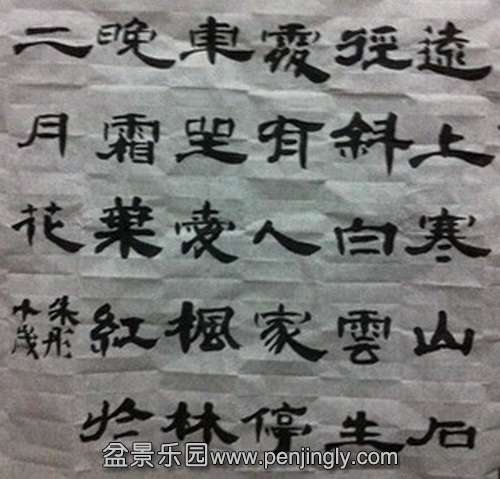 遠上寒山石
徑斜白雲生
處有人家停
車坐愛楓林
晚霜葉紅於
二月花
朱彤
歲
盆景乐园www.penjingly.com